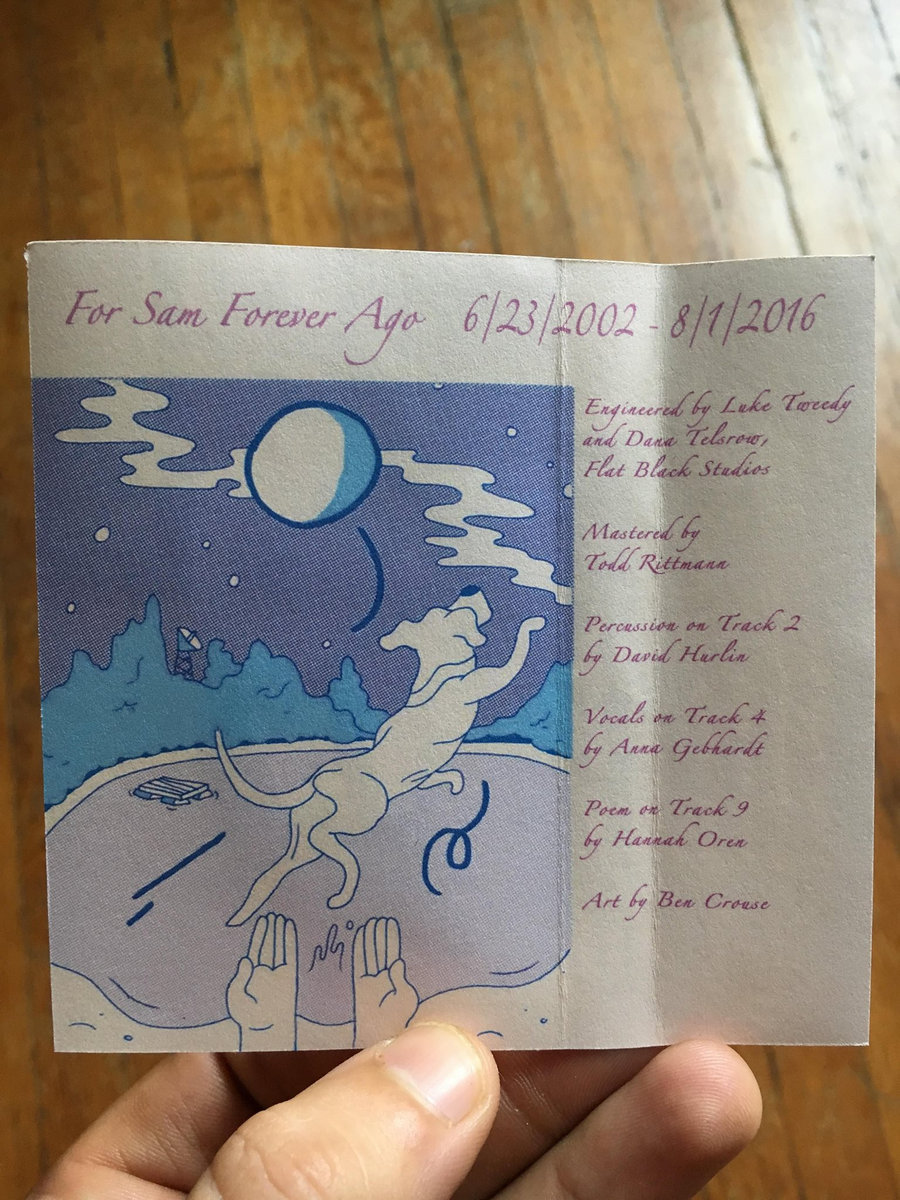 For Sam Forever Ago 6/23/2002 - 8/1/2016
Engineered by Luke Tweedy
and Dana Telsrow,
Flat Black Studios
Mastered by
Todd Rittmann
Percussion on Track 2
by David Hurlin
Vocals on Track 4
by Anna Gebhardt
Poem on Track 9
by Hannah Oren
Art by Ben Crouse